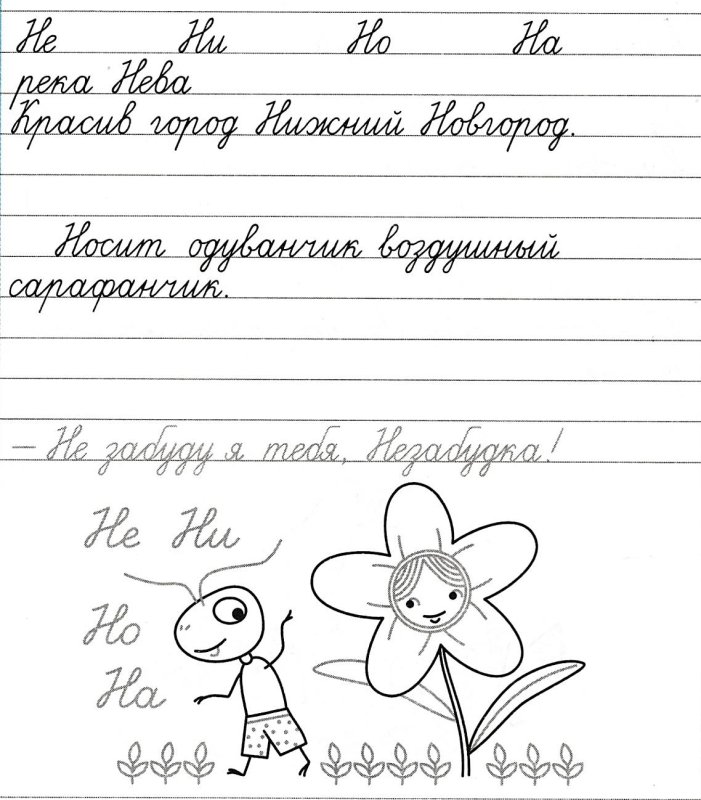 Не Ни Но На
река Нева
Красив город Нижний Новгород.
Носит одуванчик воздушный
сарафанчик.
— Не забуду я тебя, Незабудка!
Не Ни
Но
На